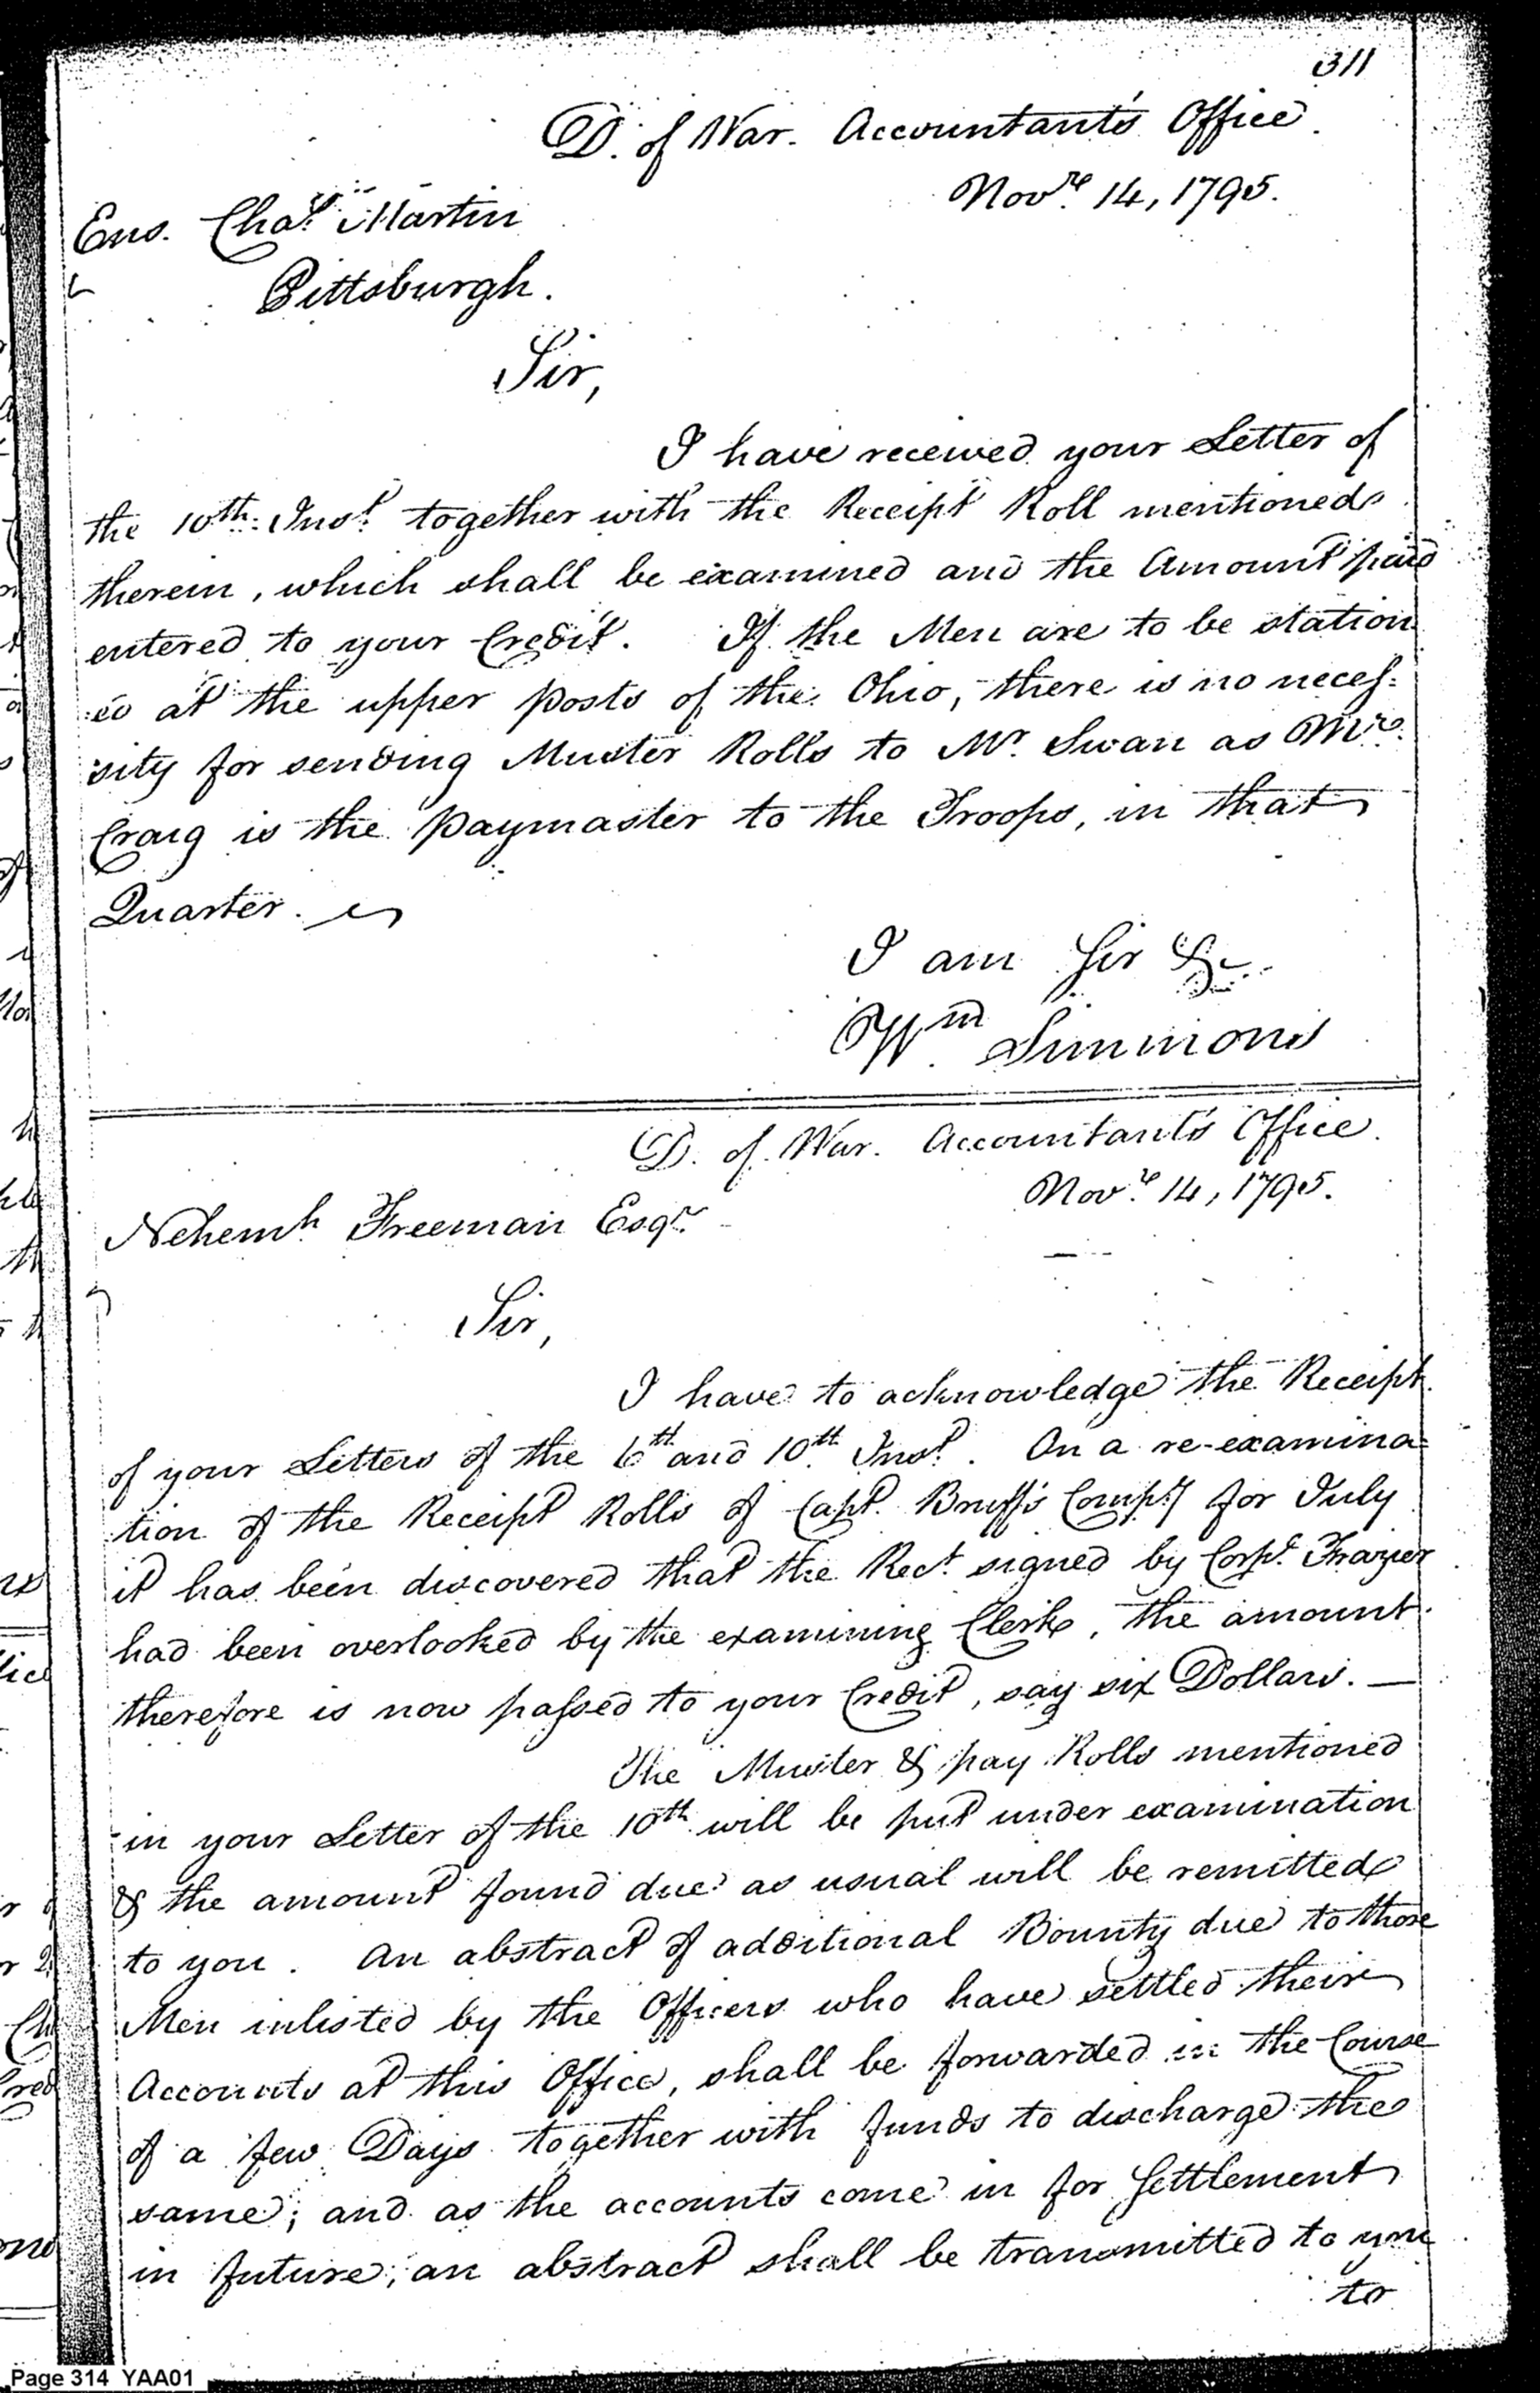 311
D. of War. Accountant's Office.
Novr. 14, 1795.
Ens. Chas. Martin
Pittsburgh.
Sir,
I have received your Letter of
the 10th. Inst. together with the Receipt Roll mentioned
therein, which shall be examined and the Amount paid
entered to your Credit. If the Men are to be station
:ed at the upper posts of the Ohio, there is no neces=
sity for sending Muster Rolls to Mr. Swan as Mr.
Craig is the paymaster to the Troops, in that
Quarter.
I am Sir &c.
Wm. Simmons
D. of War. Accountant's Office.
Novr. 14, 1795.
Nehemh Freeman Esqr.
Sir,
I have to acknowledge the Receipt
of your Letters of the 6th and 10th. Inst. On a re-examina=
tion of the Receipt Rolls of Capt. Bruff's Compy. for July
it has been discovered that the Rect. signed by Corpl. Frazier
had been overlooked by the examining Clerk, the amount
therefore is now passed to your Credit, say six Dollars. —
The Muster & pay Rolls mentioned
in your Letter of the 10th. will be put under examination
& the amount found due as usual will be remitted
to you. An abstract of additional Bounty due to those
Men inlisted by the Officers who have settled their
Accounts at this Office, shall be forwarded in the Course
of a few Days together with funds to discharge the
same; and as the accounts come in for Settlement
in future, an abstract shall be transmitted to you
to
Page 314 YAA01